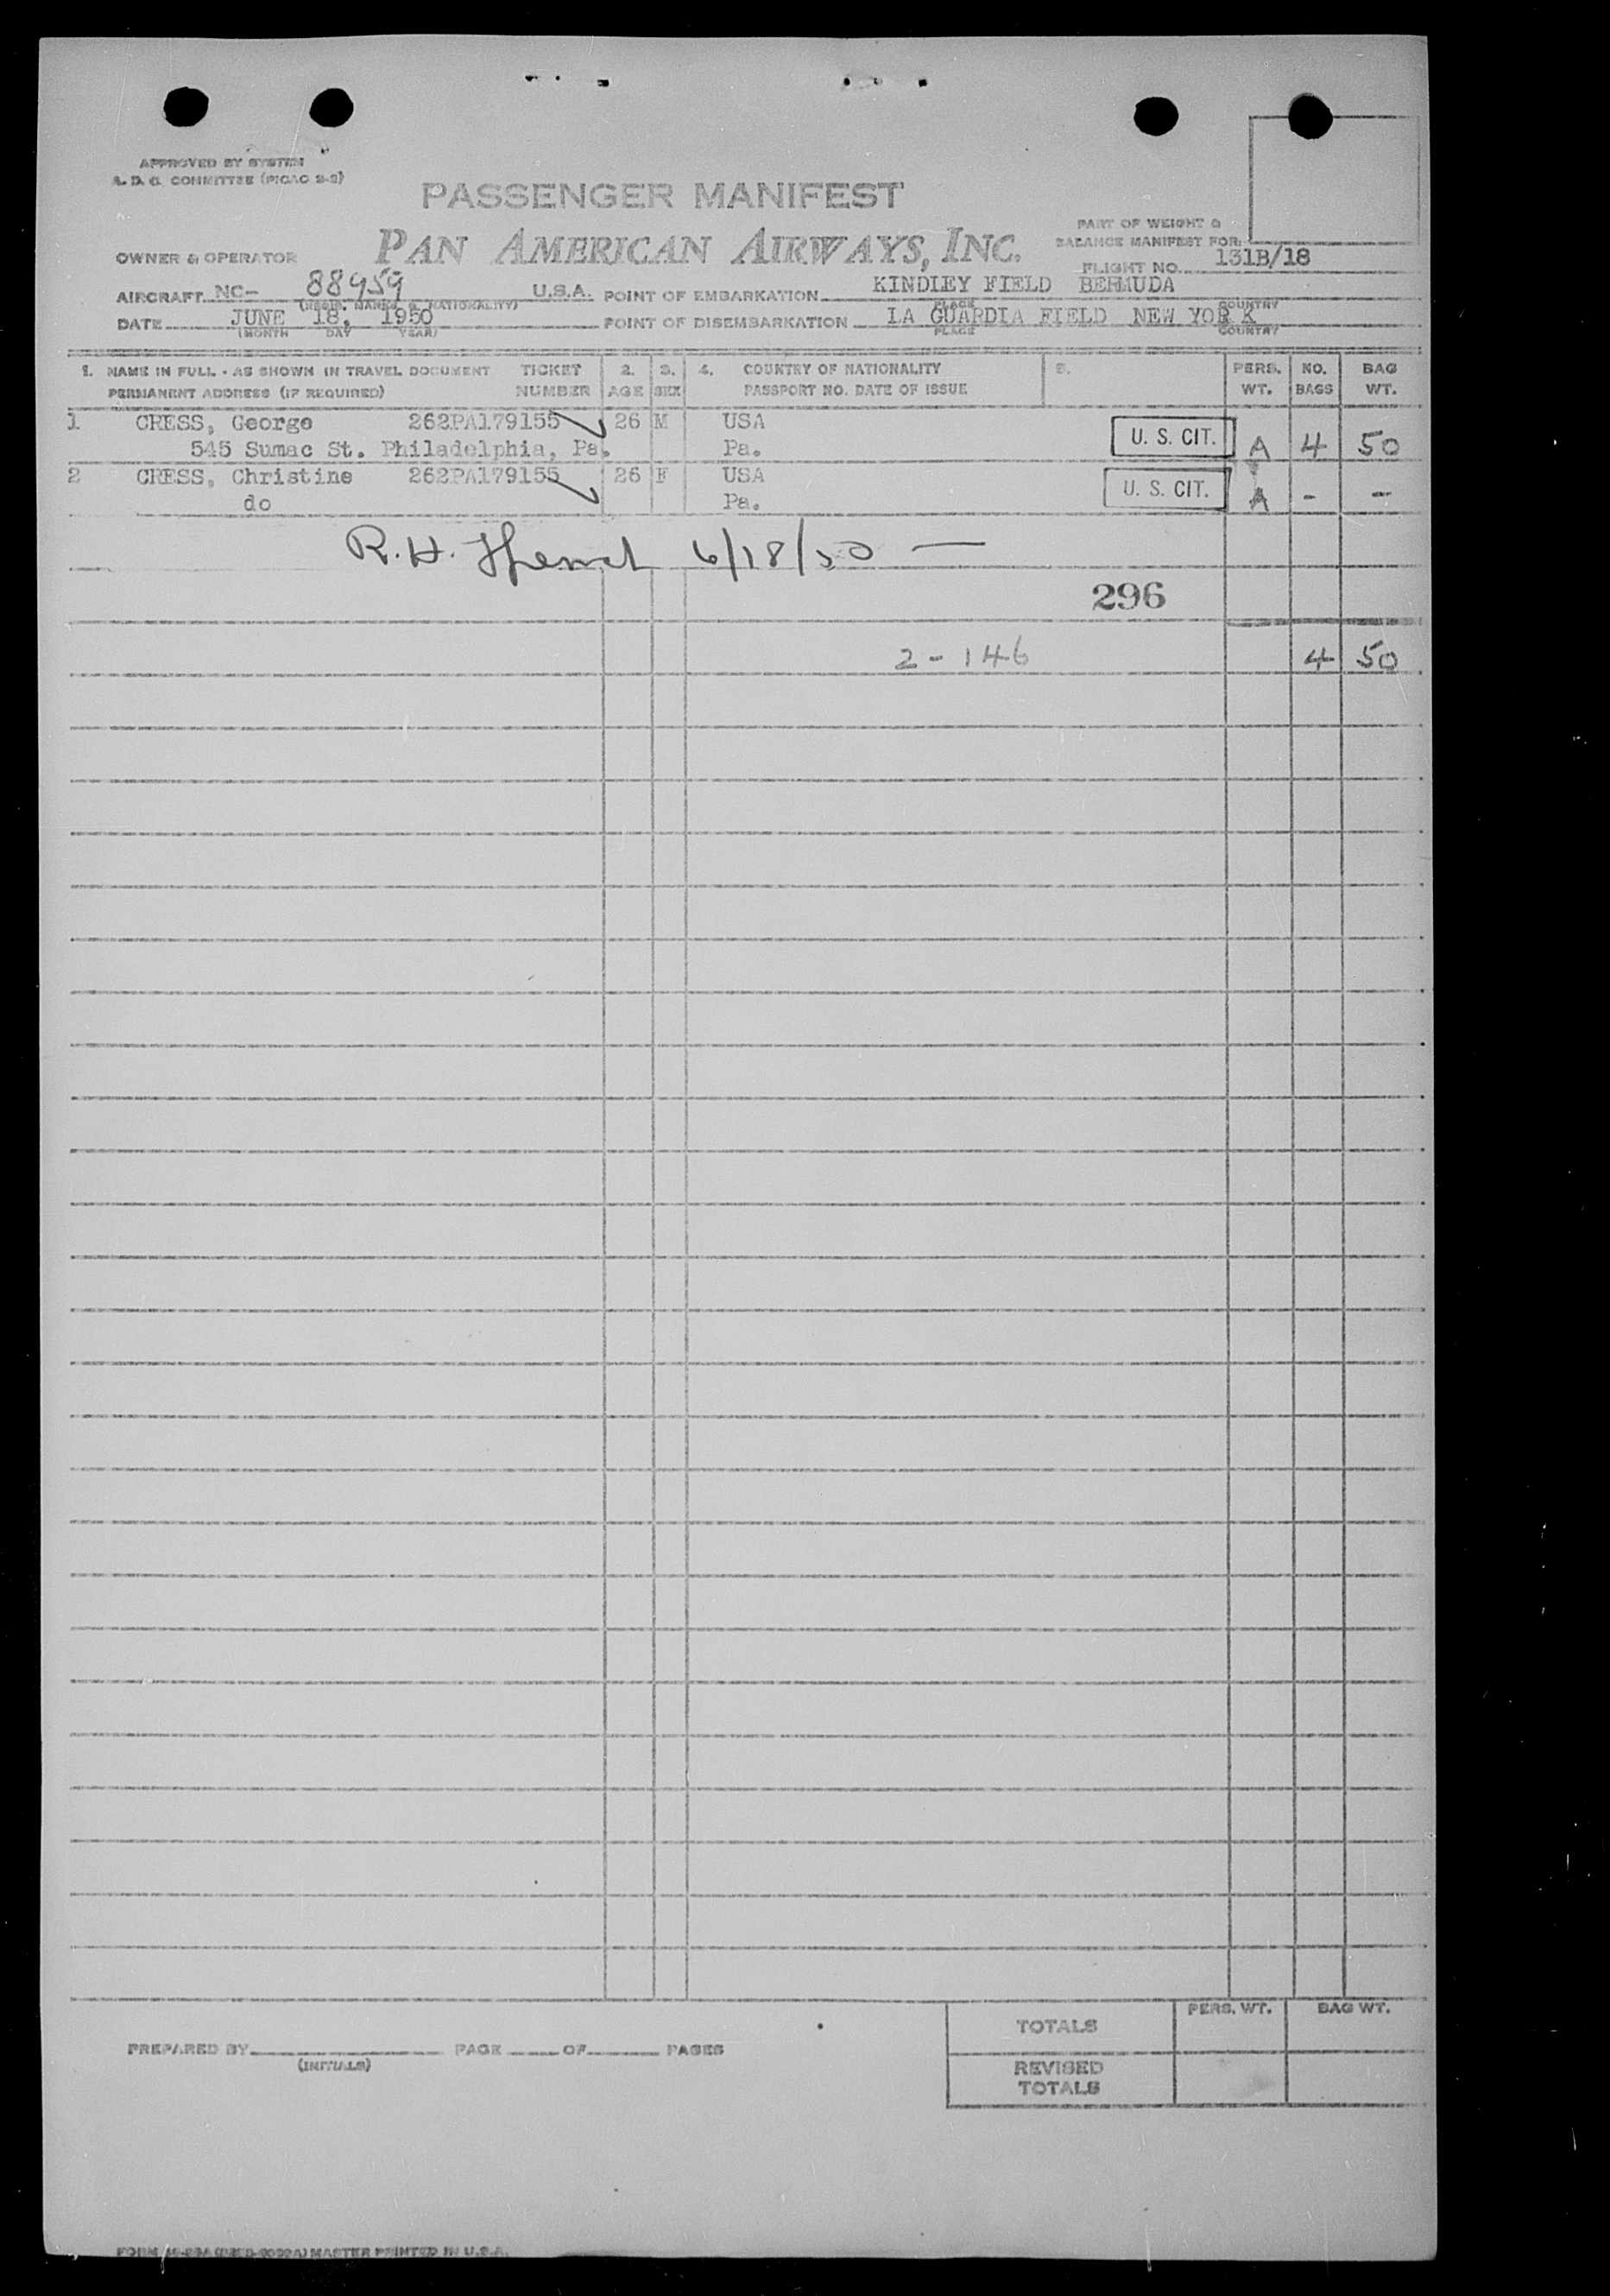 APPROVED BY SYSTEM
A. D. C. COMMITTEE (PICAO 2-2)
PASSENGER MANIFEST
PART OF WEIGHT &
BALANCE MANIFEST FOR:
OWNER & OPERATOR PAN AMERICAN AIRWAYS, INC.
FLIGHT NO. 131B/18
AIRCRAFT NC- 88959 U.S.A. POINT OF EMBARKATION KINDLEY FIELD BERMUDA
(REGIS. MARKS & NATIONALITY) PLACE COUNTRY
DATE JUNE 18, 1950 POINT OF DISEMBARKATION LA GUARDIA FIELD NEW YOR K
(MONTH DAY YEAR) PLACE COUNTRY
1. NAME IN FULL - AS SHOWN IN TRAVEL DOCUMENT TICKET 2. 3. 4. COUNTRY OF NATIONALITY 5. PERS. NO. BAG
PERMANENT ADDRESS (IF REQUIRED) NUMBER AGE SEX PASSPORT NO. DATE OF ISSUE WT. BAGS WT.
1 CRESS, George 262PA179155 26 M USA
545 Sumac St. Philadelphia, Pa. Pa. U. S. CIT. A 4 50
2 CRESS, Christine 262PA179155 26 F USA
do Pa. U. S. CIT. A - -
R. H. 6/18/50
296
2-146 4 50
TOTALS PERS. WT. BAG WT.
PREPARED BY PAGE OF PAGES
(INITIALS)
REVISED
TOTALS
MASTER PRINTED IN U.S.A.